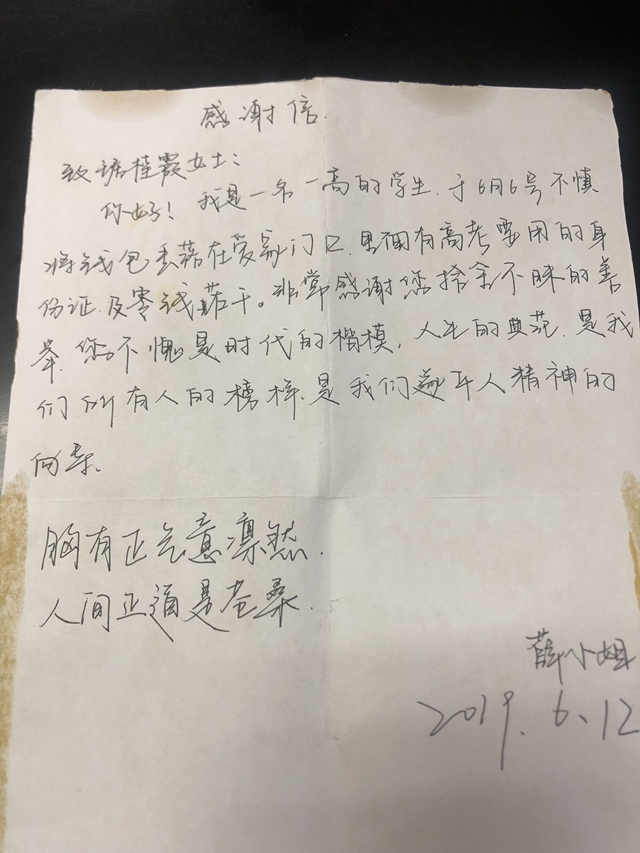 感谢信.
致 桂霞女士：
你好！我是一名一高的学生.于6月6号不慎
将钱包丢落在爱家门口.里面有高考要用的身
份证.及零钱若干。非常感谢您拾金不昧的善
举.您不愧是时代的楷模,人生的典范.是我
们所有人的榜样.是我们 人精神的
向 .
胸有正气意凛然.
人间正道是苍桑.
薛小姐
2019.6.12